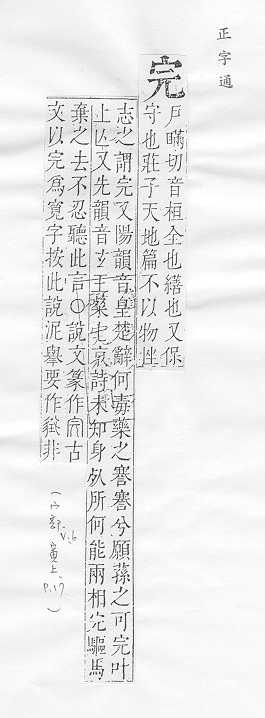 正字通
完
戶瞞切音桓全也繕也又保
守也莊子天地篇不以物挫
志之謂完又陽韻音皇楚辭何毒藥之謇謇兮願蓀之可完叶
上亾又先韻音玄王粲七哀詩未知身死所何能兩相完驅馬
棄之去不忍聽此言〇說文篆作完古
文以完爲寬字按此說泥舉要作非
(宀部, V.6 寅上, P.17)